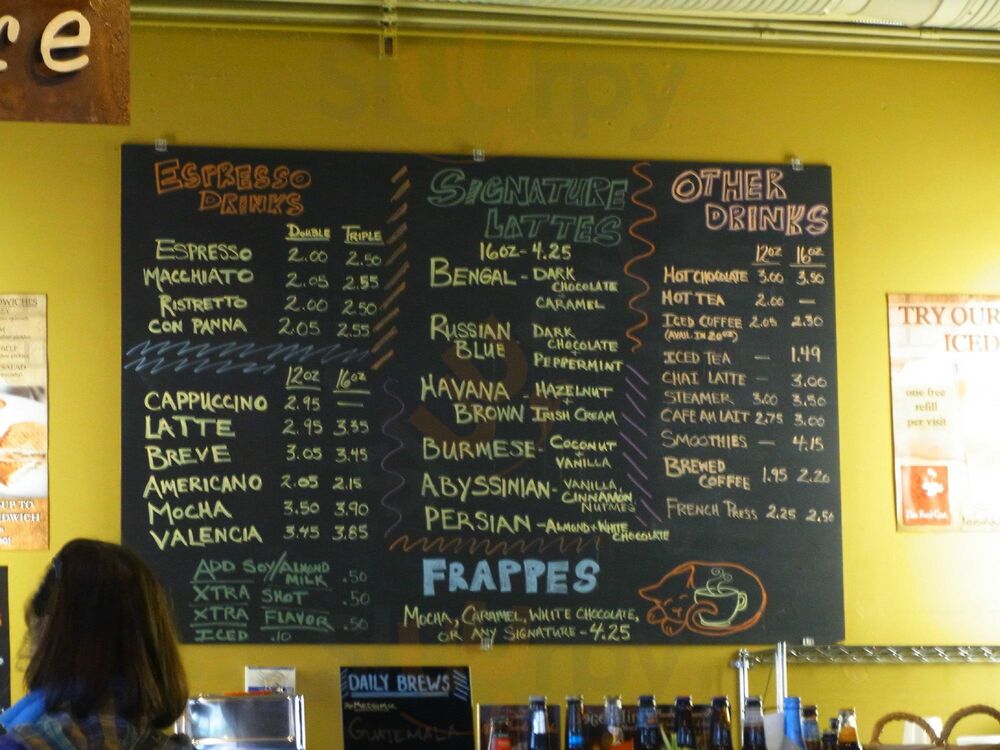 re
ESPRESSO
DRINKS
DOUBLE TRIPLE
ESPRESSO 2.00 2.50
MACCHIATO 2.05 2.55
RISTRETTO 2.00 2.50
CON PANNA 2.05 2.55
12oz 16oz
CAPPUCCINO 2.95 —
LATTE 2.95 3.35
BREVE 3.05 3.45
AMERICANO 2.05 2.15
MOCHA 3.50 3.90
VALENCIA 3.45 3.85
ADD SOY/ALMOND
MILK .50
XTRA SHOT .50
XTRA FLAVOR .50
ICED .10
SIGNATURE
LATTES
16oz - 4.25
BENGAL - DARK
CHOCOLATE
+
CARAMEL
RUSSIAN DARK
BLUE CHOCOLATE
+
PEPPERMINT
HAVANA - HAZELNUT
+
BROWN IRISH CREAM
BURMESE - COCONUT
+
VANILLA
ABYSSINIAN - VANILLA,
CINNAMON
NUTMEG
PERSIAN - ALMOND + WHITE
CHOCOLATE
FRAPPES
MOCHA, CARAMEL, WHITE CHOCOLATE,
OR ANY SIGNATURE - 4.25
OTHER
DRINKS
12oz 16oz
HOT CHOCOLATE 3.00 3.50
HOT TEA 2.00 —
ICED COFFEE 2.05 2.30
(AVAIL. IN 20oz)
ICED TEA — 1.49
CHAI LATTE — 3.00
STEAMER 3.00 3.50
CAFE AU LAIT 2.75 3.00
SMOOTHIES — 4.15
BREWED
COFFEE 1.95 2.20
FRENCH PRESS 2.25 2.50
TRY OUR
ICED
one free
refill
per visit
DWICHES
SALAD
UP TO
DWICH
DAILY BREWS
GUATEMALA
Slurpy